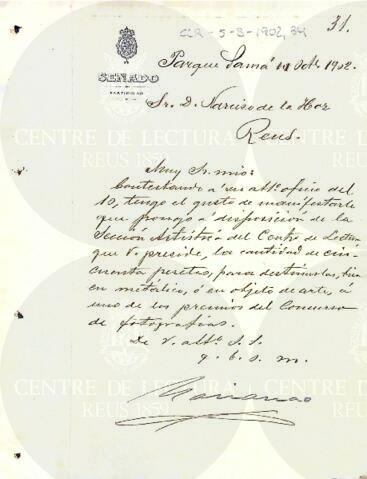 31.
CLR-5-3-1902,34
SENADO
PARTICULAR
Parque Samá 11 Octe. 1902.
Sr. D. Narciso de la Hoz
Reus.
Muy Sr. mio:
Contestando á su atto. oficio del
10, tengo el gusto de manifestarle
que pongo á disposición de la
Sección Artística del Centro de Lectura
que V. preside, la cantidad de cin-
cuenta pesetas, para destinarlas, bien
en metálico, ó en objeto de arte, á
uno de los premios del Concurso
de fotografías.
De V. atto. S. S.
q. b. s. m.
Marianao
CENTRE DE LECTURA
REUS 1859
CENTRE DE LECTURA
REUS 1859